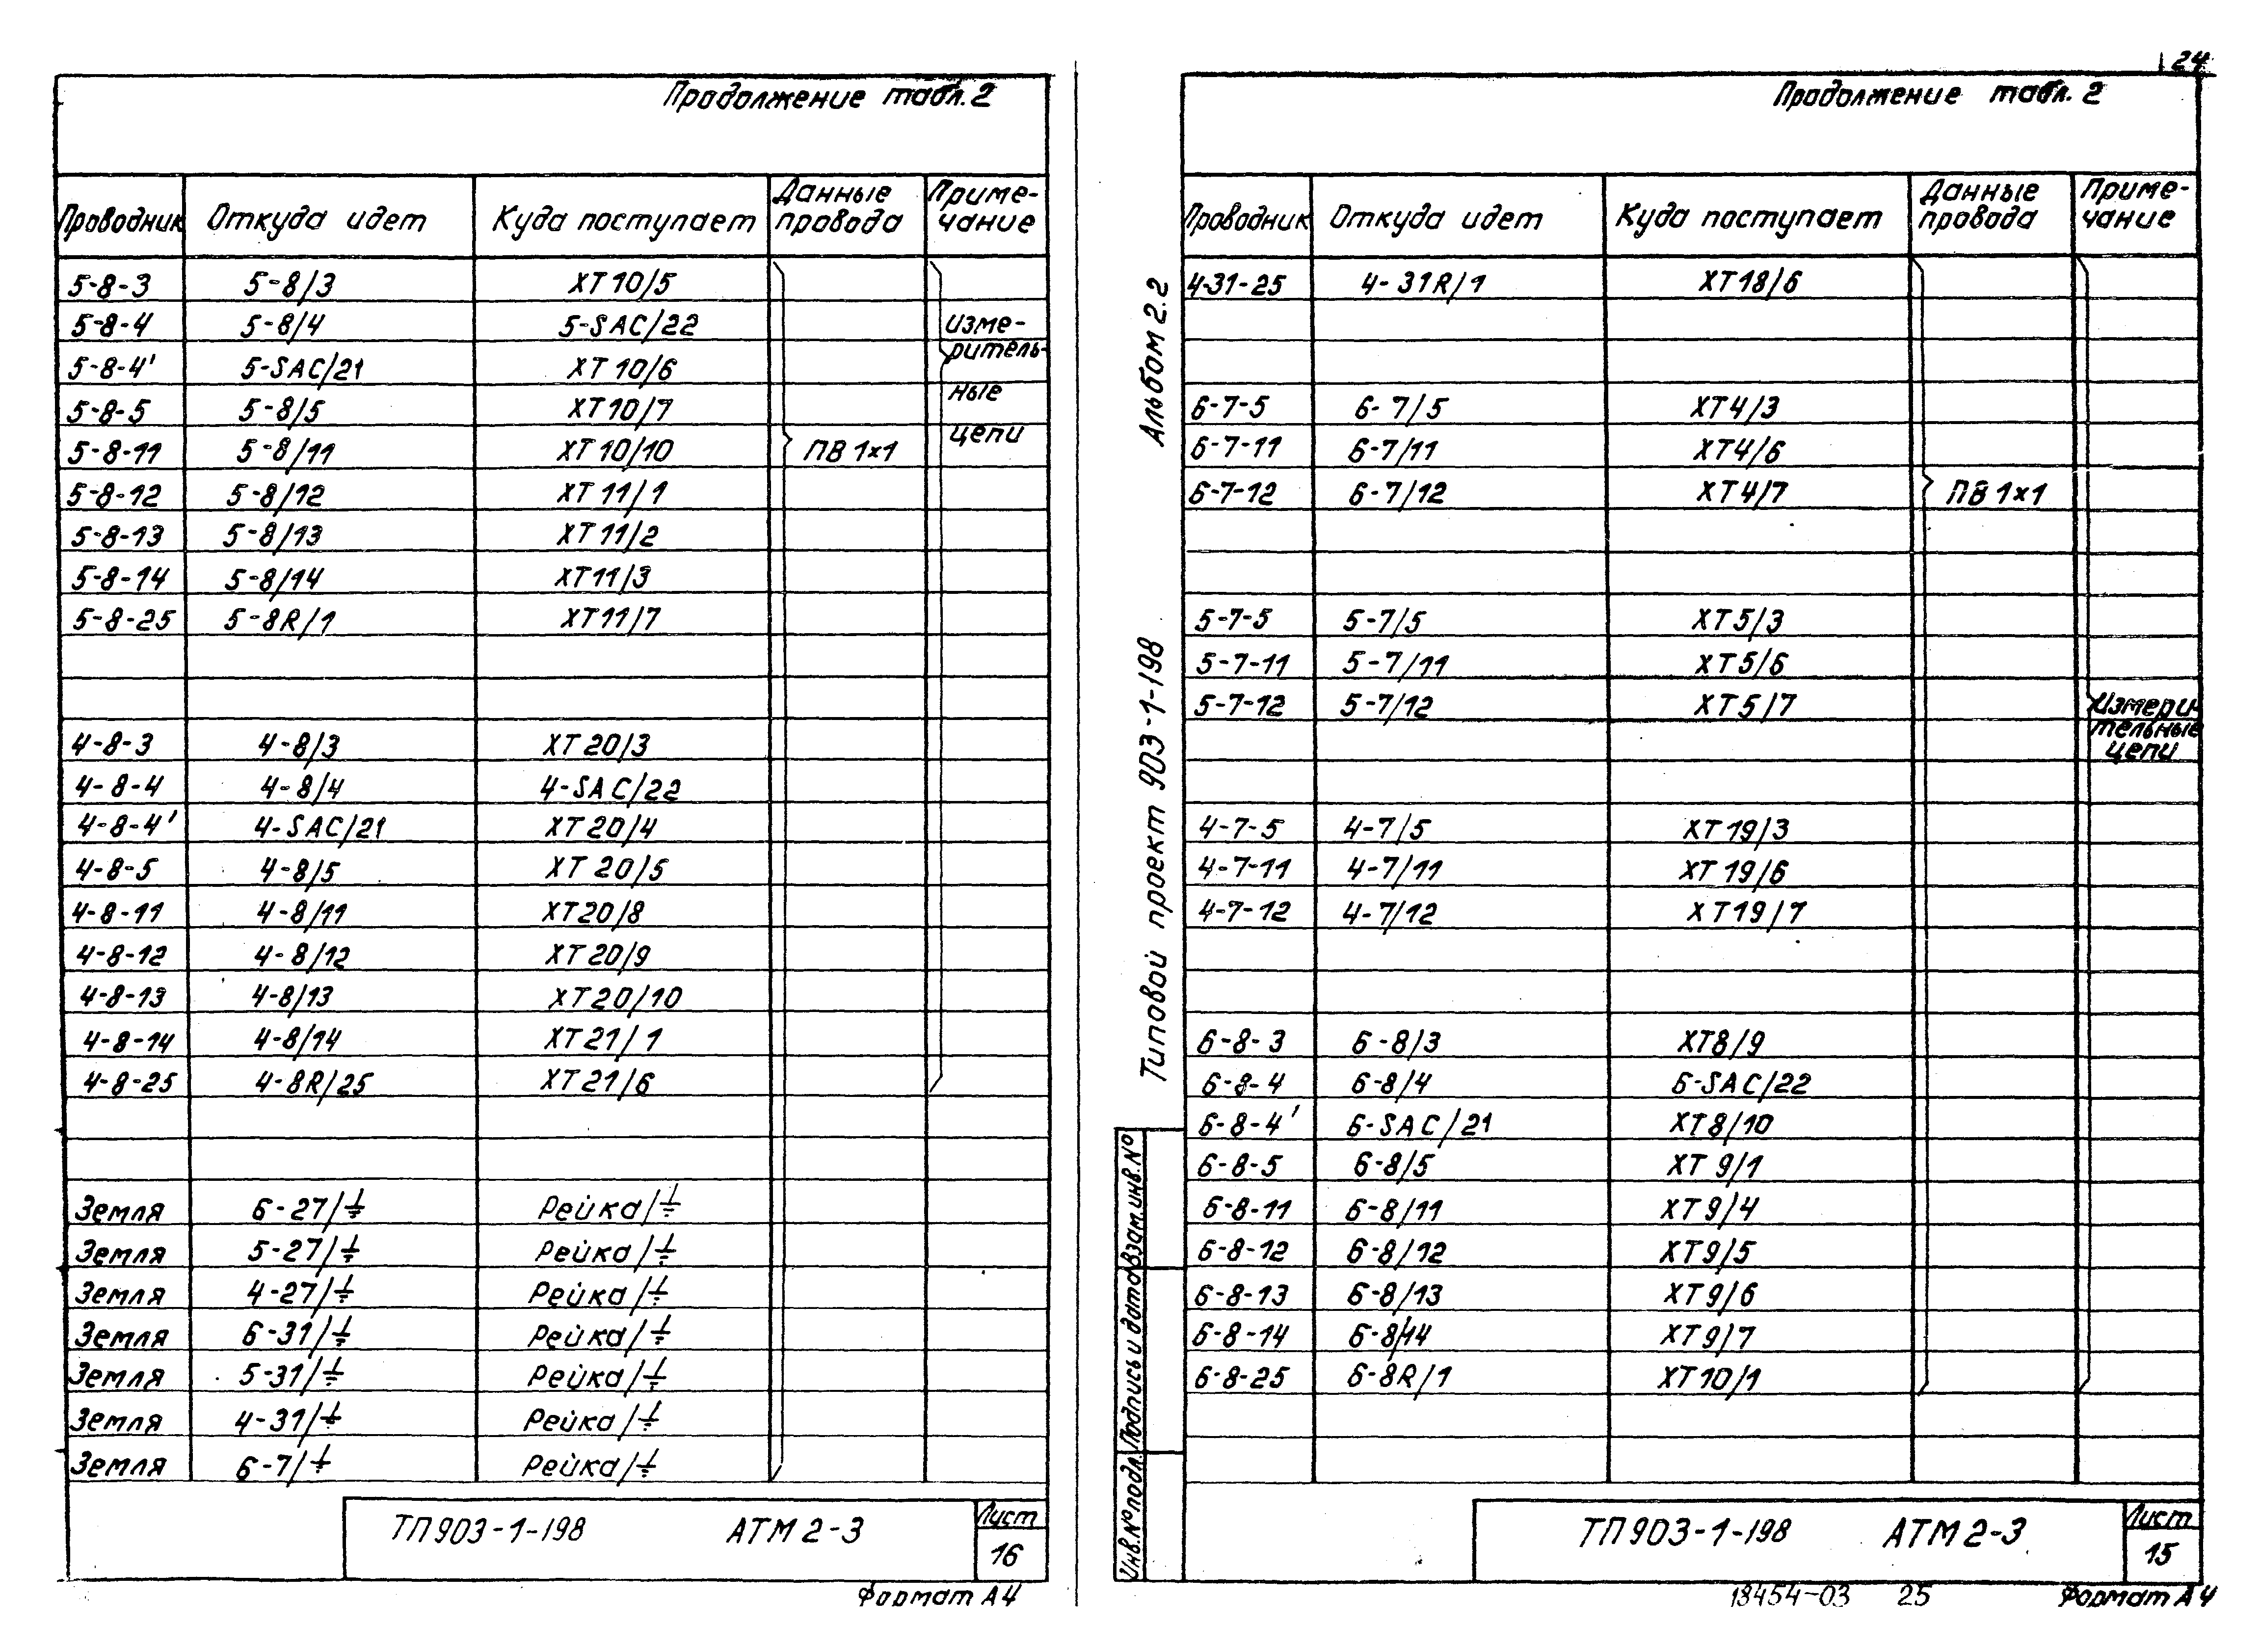 Продолжение табл. 2
Проводник Откуда идет Куда поступает Данные провода Приме-чание
5-8-3 5-8/3 XT10/5
5-8-4 5-8/4 5-SAC/22 изме-
ритель-
5-8-4' 5-SAC/21 XT10/6
ные
5-8-5 5-8/5 XT10/7
цепи
5-8-11 5-8/11 XT10/10 ПВ 1×1
5-8-12 5-8/12 XT11/1
5-8-13 5-8/13 XT11/2
5-8-14 5-8/14 XT11/3
5-8-25 5-8R/1 XT11/7
4-8-3 4-8/3 XT20/3
4-8-4 4-8/4 4-SAC/22
4-8-4' 4-SAC/21 XT20/4
4-8-5 4-8/5 XT20/5
4-8-11 4-8/11 XT20/8
4-8-12 4-8/12 XT20/9
4-8-13 4-8/13 XT20/10
4-8-14 4-8/14 XT21/1
4-8-25 4-8R/25 XT21/6
Земля 6-27/⏚ Рейка/⏚
Земля 5-27/⏚ Рейка/⏚
Земля 4-27/⏚ Рейка/⏚
Земля 6-31/⏚ Рейка/⏚
Земля 5-31/⏚ Рейка/⏚
Земля 4-31/⏚ Рейка/⏚
Земля 6-7/⏚ Рейка/⏚
ТП 903-1-198 АТМ 2-3 Лист
16
Формат А4
24
Продолжение табл. 2
Проводник Откуда идет Куда поступает Данные провода Приме-чание
4-31-25 4-31R/1 XT18/6
6-7-5 6-7/5 XT4/3
6-7-11 6-7/11 XT4/6
6-7-12 6-7/12 XT4/7 ПВ 1×1
5-7-5 5-7/5 XT5/3
5-7-11 5-7/11 XT5/6
5-7-12 5-7/12 XT5/7 Измери-
тельные
цепи
4-7-5 4-7/5 XT19/3
4-7-11 4-7/11 XT19/6
4-7-12 4-7/12 XT19/7
6-8-3 6-8/3 XT8/9
6-8-4 6-8/4 6-SAC/22
6-8-4' 6-SAC/21 XT8/10
6-8-5 6-8/5 XT9/1
6-8-11 6-8/11 XT9/4
6-8-12 6-8/12 XT9/5
6-8-13 6-8/13 XT9/6
6-8-14 6-8/14 XT9/7
6-8-25 6-8R/1 XT10/1
ТП 903-1-198 АТМ 2-3 Лист
15
18454-03 25 Формат А4
Альбом 2.2
Типовой проект 903-1-198
Взам.инв.№
Подпись и дата
Инв.№ подл.